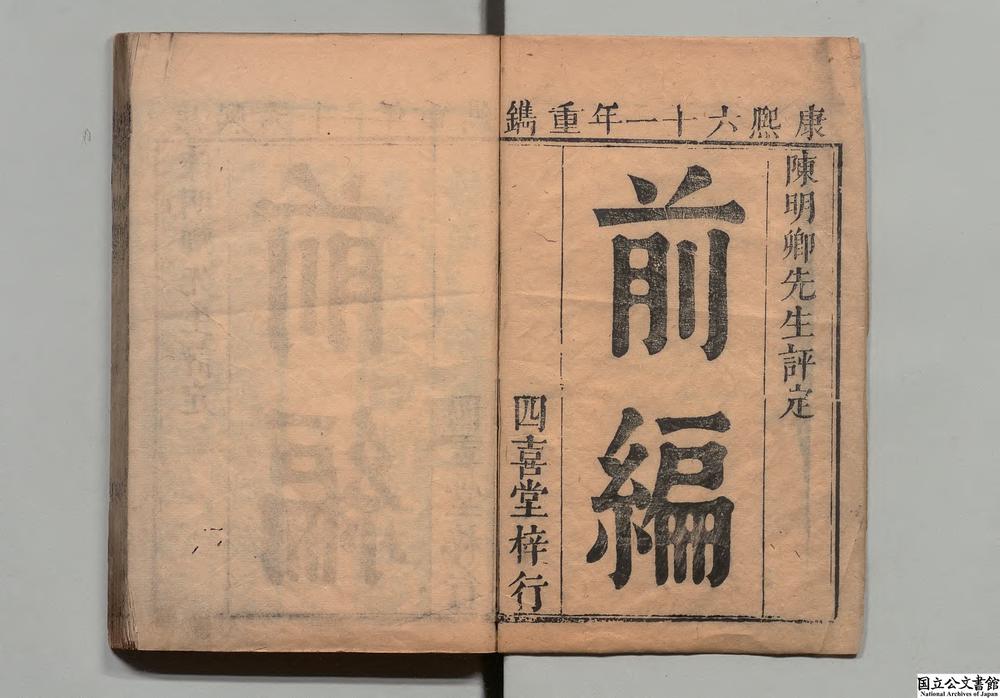 康熈六十一年重鐫
陳明卿先生評定
前編
四喜堂梓行
国立公文書館
National Archives of Japan